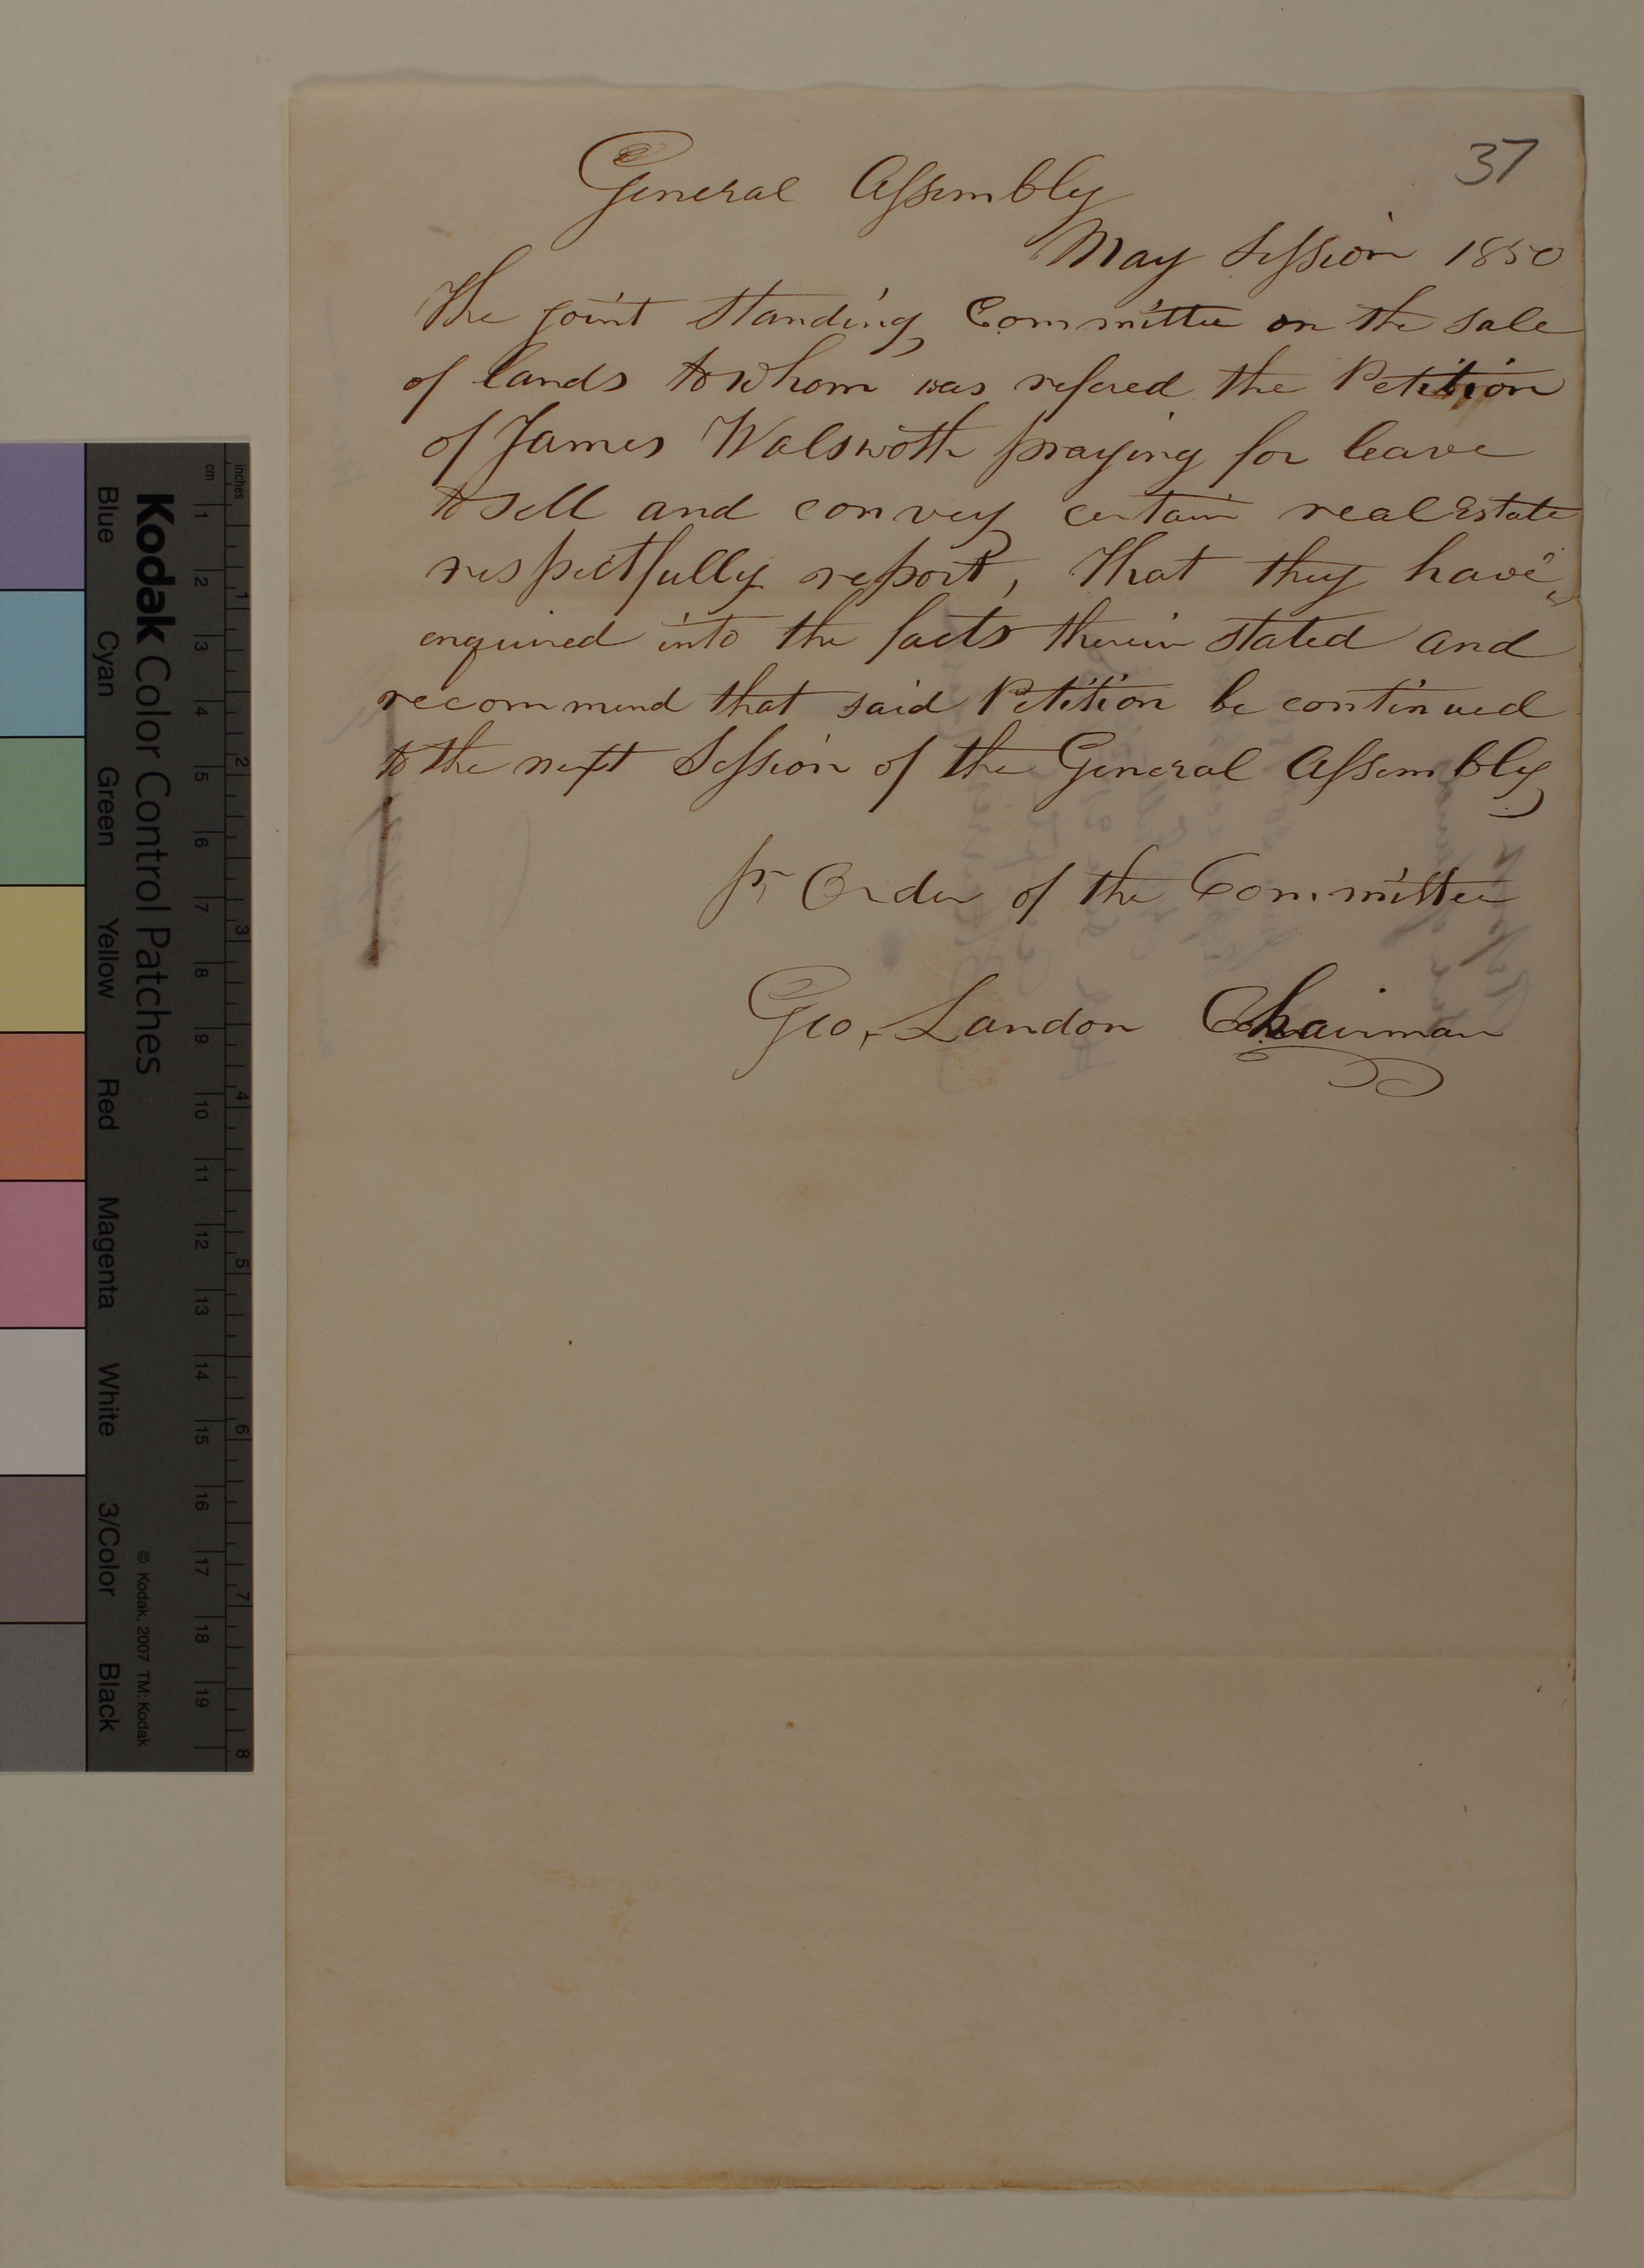 37
General Assembly
May Session 1850
The joint standing Committee on the sale
of lands to whom was refered the Petition
of James Walsworth praying for leave
to sell and convey certain real Estate
respectfully report, That they have
enquired into the facts therein stated and
recommend that said Petition be continued
to the next Session of the General Assembly
pr Order of the Committee
Geo, Landon Chairman
Kodak Color Control Patches
© Kodak, 2007 TM: Kodak
inches 1 2 3 4 5 6 7 8
cm 1 2 3 4 5 6 7 8 9 10 11 12 13 14 15 16 17 18 19
Blue Cyan Green Yellow Red Magenta White 3/Color Black